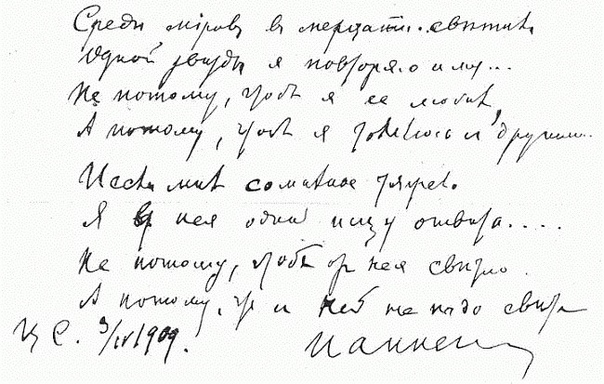 Среди мiровъ, в мерцанiи свѣтилъ
Одной звѣзды я повторяю имя...
Не потому, чтобъ я ее любилъ,
А потому, что я томлюсь съ другими.
И если мнѣ сомнѣнье тяжело.
Я у нея одной ищу отвѣта.....
Не потому, что отъ нея свѣтло.
А потому, что съ ней не надо свѣта
Ц С. 3/IV 1909. И Анненск